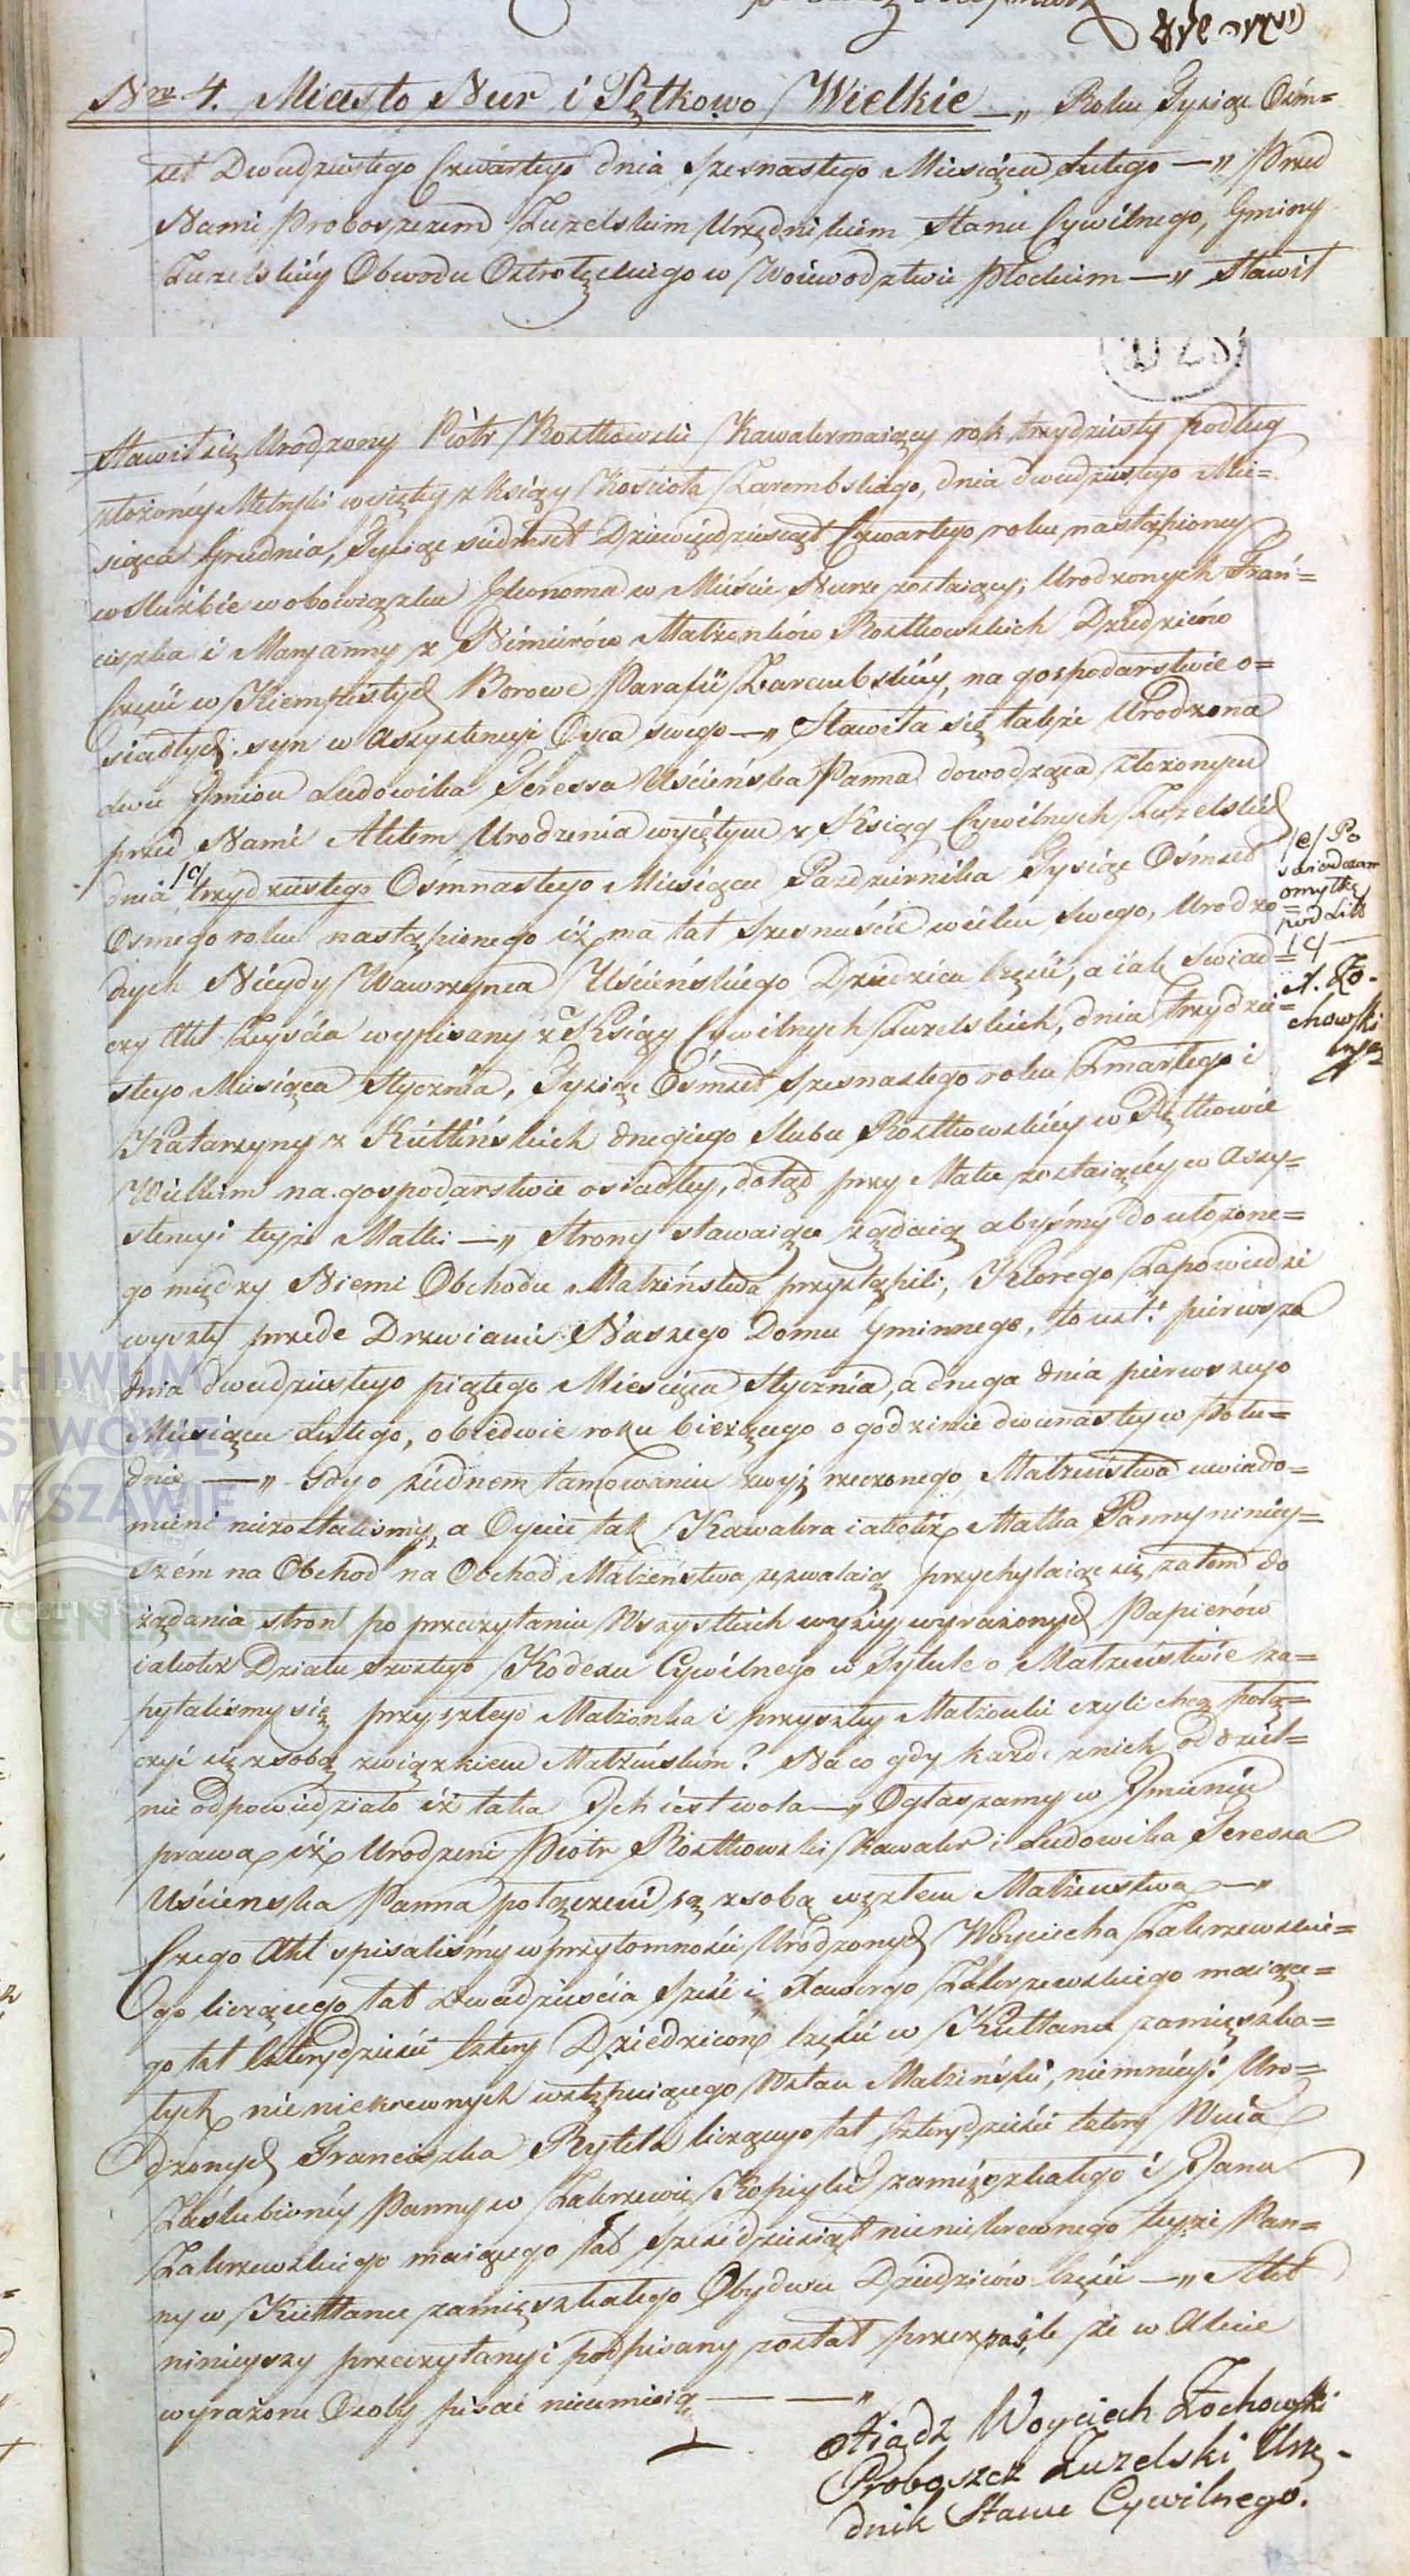 Nro 4. Miasto Nur i Pętkowo Wielkie —„ Roku Tysiąc Ośm=
set Dwudziestego Czwartego dnia Szesnastego Miesiąca Lutego —„ Przed
Nami Proboszczem Zuzelskim Urzędnikiem Stanu Cywilnego, Gminy
Zuzelskiey Obwodu Ostrołęckiego w Woiewodztwie Płockim —„ Stawił
Stawił się Urodzony Piotr Rostkowski Kawaler maiący rok trzydziesty podług
złożoney Metryki wyiętey z Księgi Kościoła Zarembskiego, dnia dwudziestego Mie=
siąca Grudnia, Tysiąc siedmset Dziewięćdziesiąt Czwartego roku nastąpioney
w Służbie w obowiązku Ekonoma w Mieście Nurze zostaiący; Urodzonych Fran=
ciszka i Maryanny z Nimirów Małżonków Rostkowskich Dziedziców
Części w Kiempistych Borowe Parafii Zarembskiey, na gospodarstwie o=
siadłych: syn w Assystencyi Oyca swego —„ Stawiła się także Urodzona
dwu Imion Ludowika Teressa Uścieńska Panna dowodząca złożonym
przed Nami Aktem Urodzenia wyiętym z Ksiąg Cywilnych Zuzelskich
dnia /c/ trzydziestego Ośmnastego Miesiąca Pazdziernika Tysiąc Ośmset
Osmego roku nastąpionego iż ma lat szesnaście wieku swego, Urodzo=
nych Niegdy Wawrzynca Uścieńskiego Dziedzica części, a iak świad=
czy Akt Zeyścia wypisany z Ksiąg Cywilnych Zuzelskich, dnia trzydzie=
stego Miesiąca Stycznia, Tysiąc Ośmset szesnastego roku Zmarłego i
Katarzyny z Kutłińskich drugiego Slubu Rostkowskiey w Pętkowie
Wielkim na gospodarstwie osiadłey, dotąd przy Matce zostaiącey w Assy=
stencyi teyże Matki —„ Strony stawaiące żądaią abyśmy do ułożone=
go między Niemi Obchodu Małżeństwa przystąpili, Ktorego Zapowiedzi
wyszły przede Drzwiami Naszego Domu Gminnego, to iest: pierwsza
dnia dwudziestego piątego Miesiąca Stycznia, a druga dnia pierwszego
Miesiąca Lutego, obiedwie roku bieżącego o godzinie dwunastey w Połu=
dnie —„ Gdy o żadnem tamowaniu zwyż rzeczonego Małżeństwa uwiado=
mieni niezostaliśmy, a Oyciec tak Kawalera iakoteż Matka Panny niniey=
szém na Obchod na Obchod Małżeństwa zezwalaią przychylaiąc się zatem do
żądania stron po przeczytaniu Wszystkich wyżey wyrażonych Papierów
iakoteż Działu szostego Kodexu Cywilnego w Tytule o Małżeństwie za=
pytaliśmy się przyszłego Małżonka i przyszłey Małżonki czyli chcą połą=
czyć się z sobą związkiem Małżeńskim? Na co gdy każde z nich oddziel=
nie odpowiedziało iż taka Ich iest wola —„ Ogłaszamy w Imieniu
prawa iż Urodzeni Piotr Rostkowski Kawaler i Ludowika Teressa
Uścienska Panna połączeni są z sobą węzłem Małżenstwa —„
Czego Akt spisaliśmy w przytomności Urodzonych Woyciecha Zakrzewskie=
go liczącego lat dwadzieścia sześć i Xawerego Zakrzewskiego maiące=
go lat czterdzieści cztery Dziedziców części w Kutłanu zamięszka=
łych nieniekrewnych wstępuiącego w Stan Małżeński, niemniey: Uro=
dzonych Franciszka Rytela liczącego lat czterydzieści cztery Wuia
Zaślubioney Panny w Zakrzewie Kopiyki zamięszkałego i Jana
Zakrzewskiego maiącego lat sześćdziesiąt nieniekrewnego teyże Pan=
ny w Kuttanu zamięszkałego Obydwu Dziedziców części —„ Akt
ninieyszy przeczytany i podpisany został przez nas, ile że w Akcie
wyrażone Osoby pisać nieumieią — — „
/c/ Po
swiadczam
omyłkę
pod Lit
/c/ —
X. Żo-
chowski
Xiądz Woyciech Żochowski
Proboszcz Zuzelski Urzę-
dnik Stanu Cywilnego.